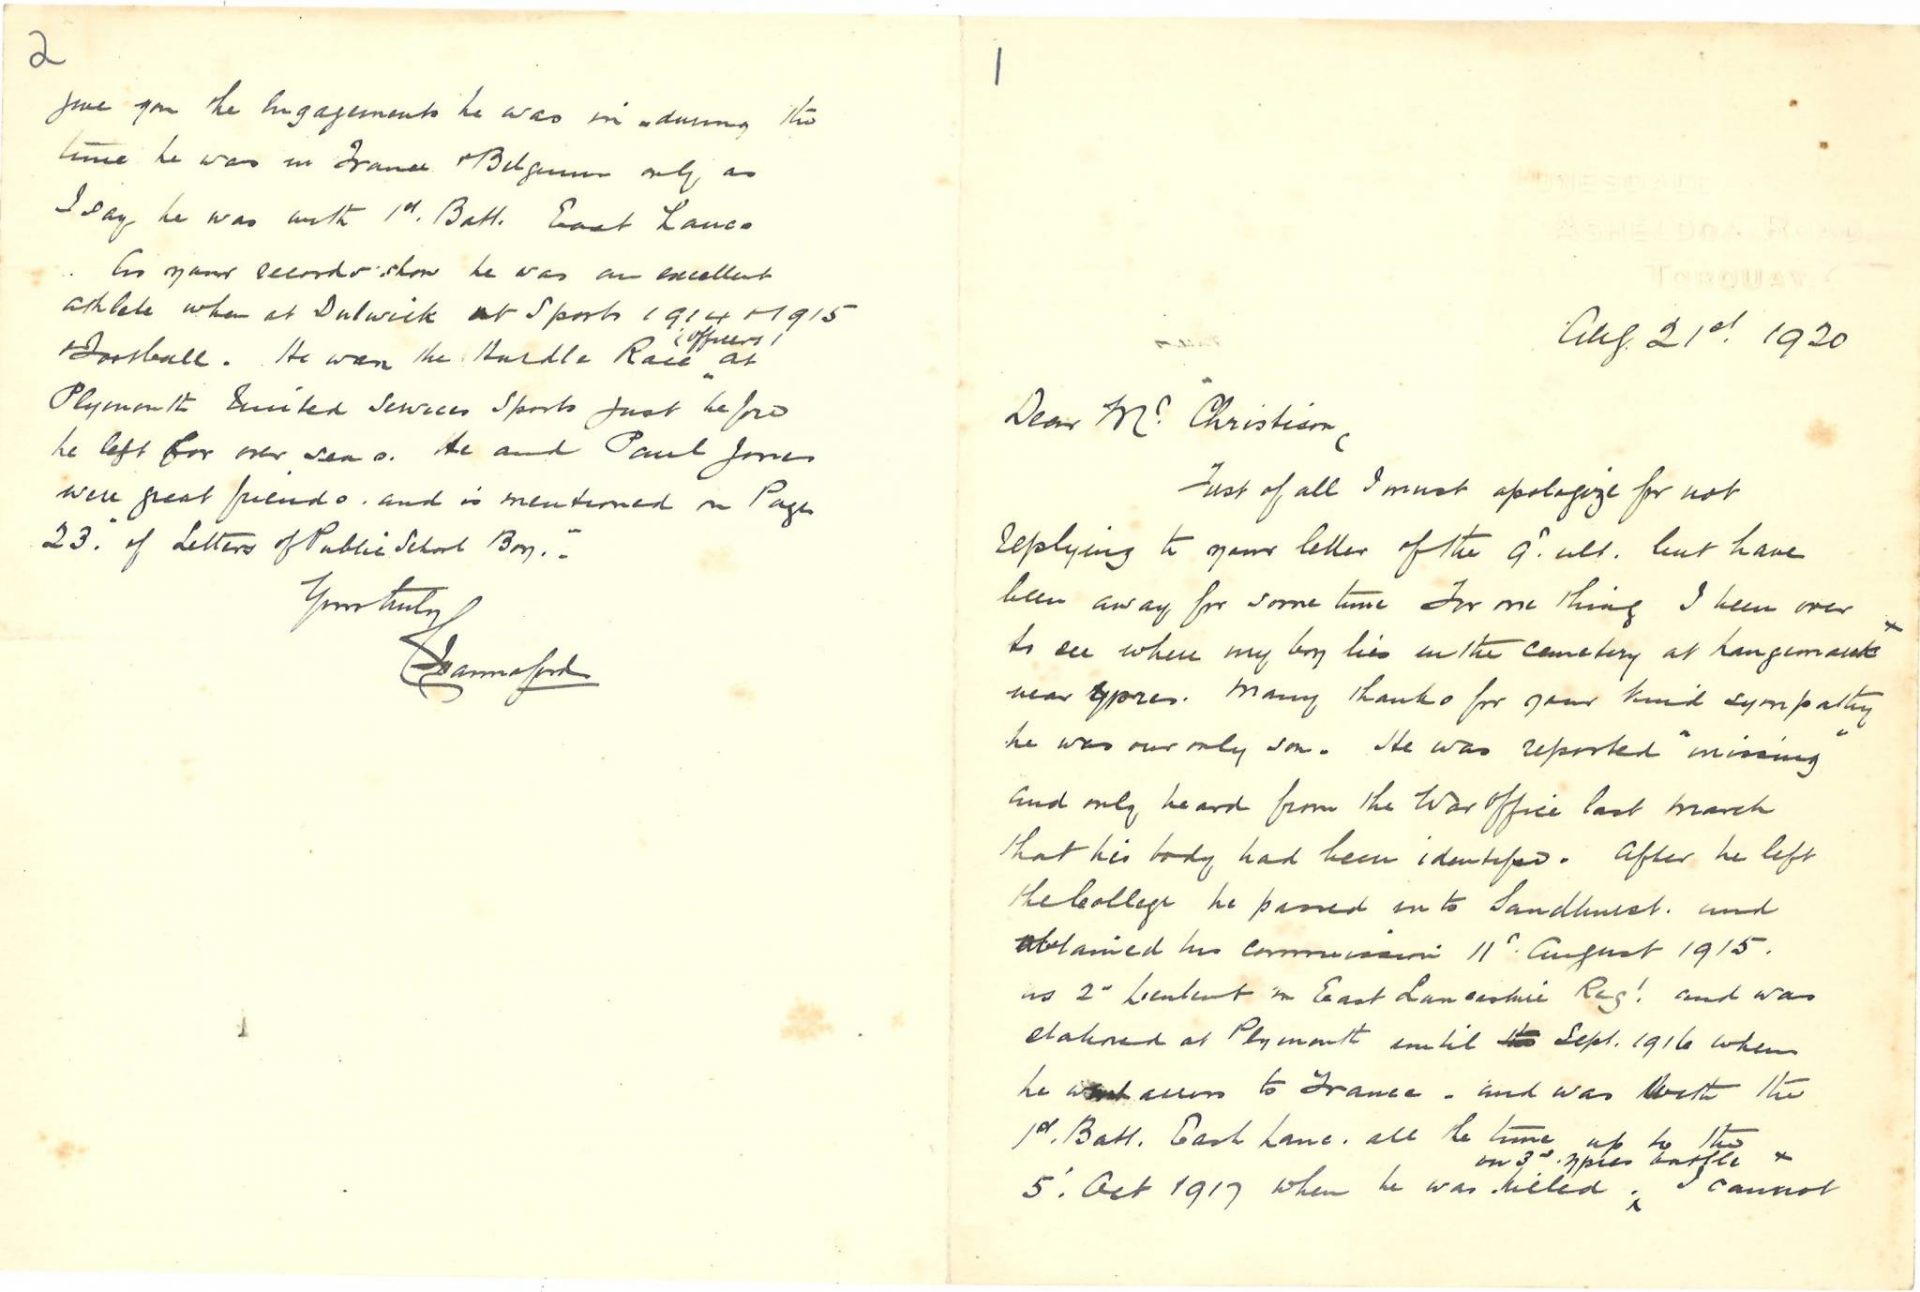 1
Aug. 21st. 1920
Dear Mr. Christison,
First of all I must apologize for not
replying to your letter of the 9th. ult. but have
been away for some time For one thing I been over
to see where my boy lies in the cemetery at Langemark ×
near Ypres. Many thanks for your kind sympathy
he was our only son. He was reported "missing"
and only heard from the War Office last March
that his body had been identified. After he left
the College he passed into Sandhurst. and
obtained his commission 11th. August 1915.
as 2nd Lieutent in East Lancashire Regt. and was
stationed at Plymouth until Sept. 1916 when
he went across to France. and was with the
1st. Batt. East Lanc. all the time up to the
in 3rd Ypres battle ×
5th. Oct 1917 when he was killed. I cannot
2
give you the Engagements he was in during the
time he was in France & Belgium only as
I say he was with 1st. Batt. East Lancs
As your records show he was an excellent
athlete when at Dulwich at Sports 1914 & 1915
(officers)
& Football. He won the Hurdle Race at
Plymouth United Services Sports just before
he left for over seas. He and Paul Jones
were great friends. and is mentioned on Page
23. "of Letters of Public School Boy."
Yours truly
Hannaford